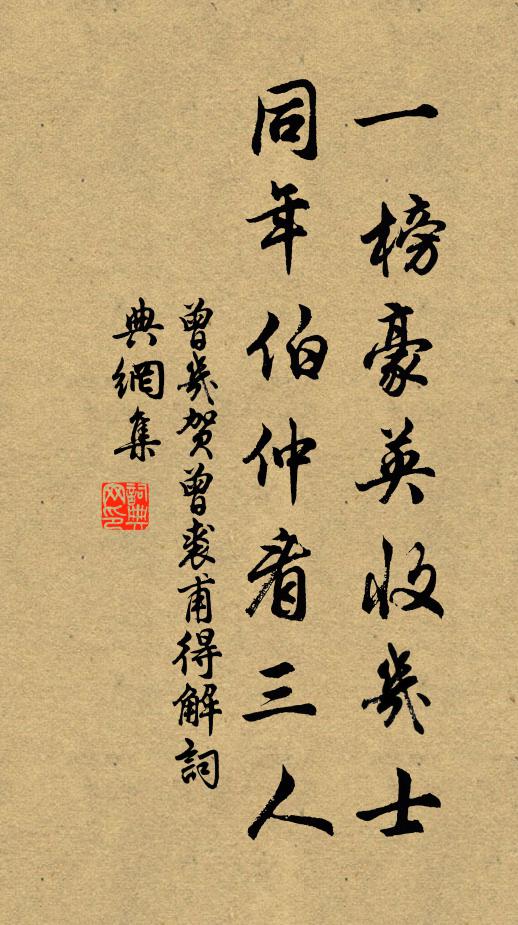 一榜豪英收幾士
同年伯仲看三人
曾幾賀曾裘甫得解詞
典網集
詞典
网印